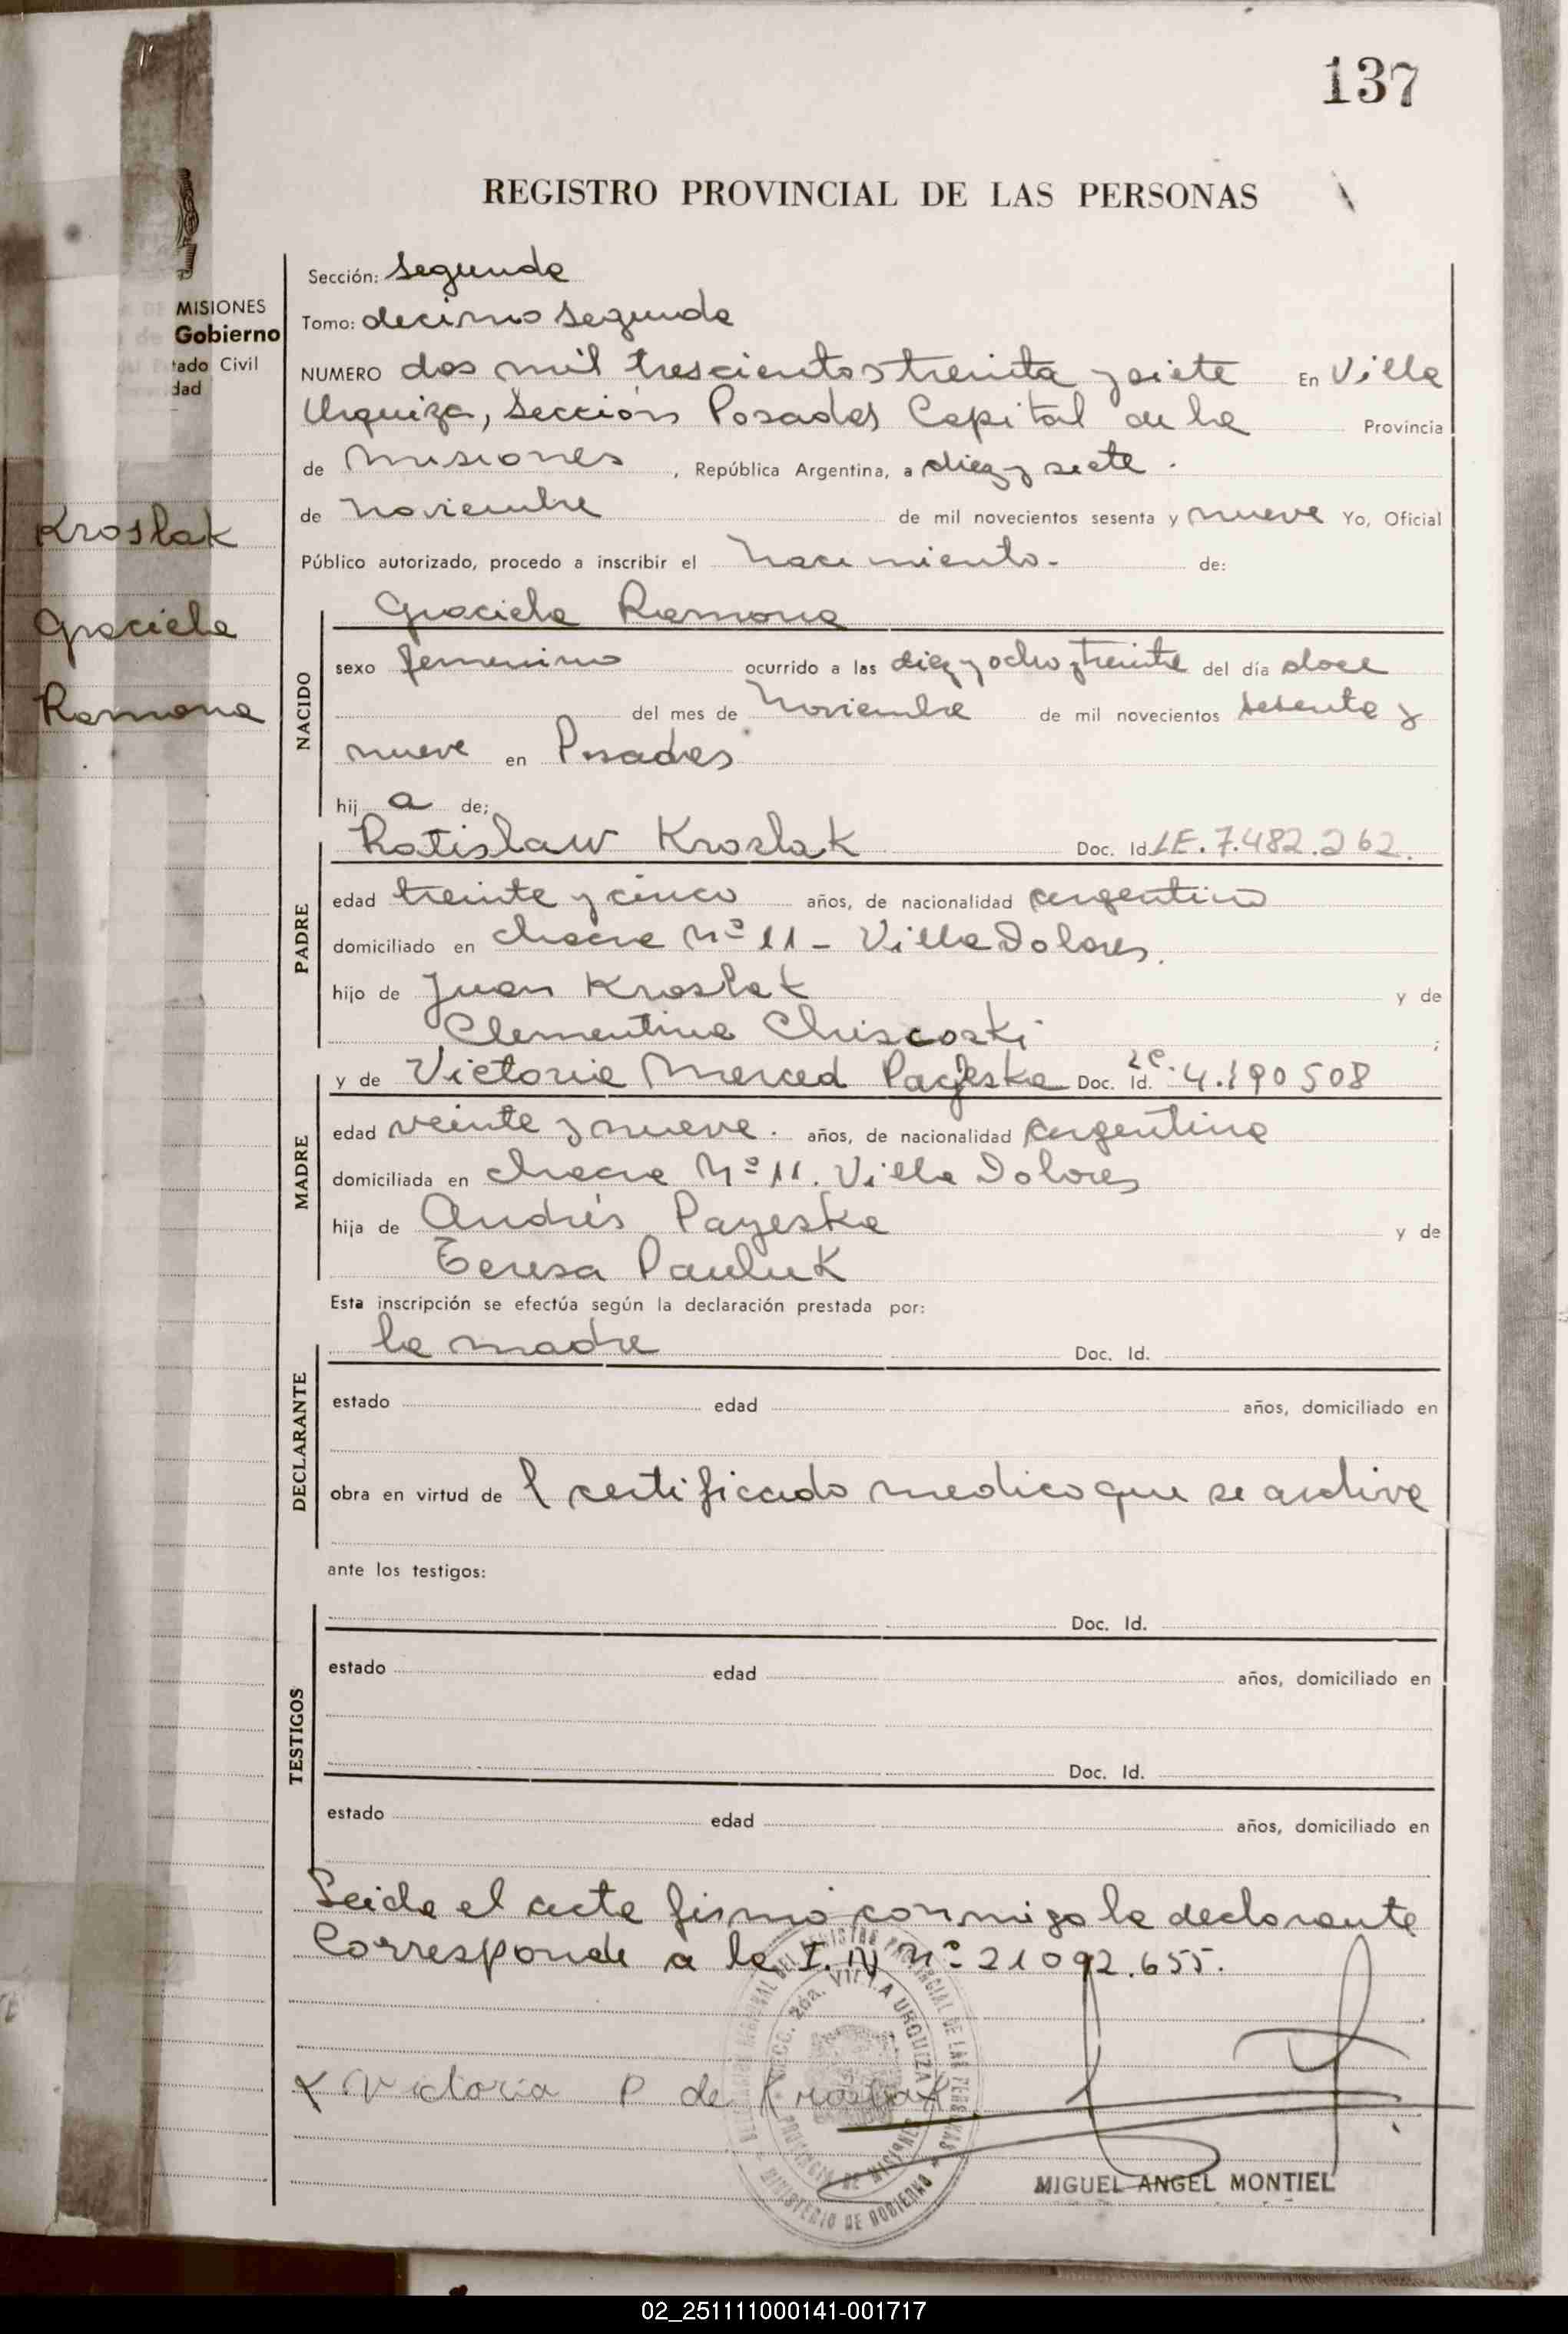 137
REGISTRO PROVINCIAL DE LAS PERSONAS
MISIONES
Gobierno
tado Civil
dad
Kroslak
Graciela
Ramona
Sección: Segunda
Tomo: decimo segunda
NUMERO dos mil trescientos treinta y siete En Villa
Urquiza, Sección Posadas Capital de la Provincia
de Misiones, República Argentina, a diez y siete.
de noviembre de mil novecientos sesenta y nueve Yo, Oficial
Público autorizado, procedo a inscribir el nacimiento- de:
Graciela Ramona
NACIDO
sexo femenino ocurrido a las diez y ocho y treinta del día doce
del mes de Noviembre de mil novecientos sesenta y
nueve en Posadas
hij a de;
PADRE
Ratislaw Kroslak Doc. Id. LE. 7.482.262.
edad treinta y cinco años, de nacionalidad argentino
domiciliado en chacra Nº 11 - Villa Dolores.
hijo de Juan Kroslak y de
Clementina Chiscoski ;
MADRE
y de Victoria Merced Payeska Doc. Id. LC. 4.190508
edad veinte y nueve. años, de nacionalidad argentina
domiciliada en chacra Nº 11. Villa Dolores
hija de Andrés Payeska y de
Teresa Pauluk
Esta inscripción se efectúa según la declaración prestada por:
DECLARANTE
la madre Doc. Id.
estado edad años, domiciliado en
obra en virtud de l certificado medico que se archiva
ante los testigos:
TESTIGOS
Doc. Id.
estado edad años, domiciliado en
Doc. Id.
estado edad años, domiciliado en
Leida el acta firmó conmigo la declarante
Corresponde a la I. N Nº 21092.655.
Victoria P de Kroslak
DEL REGISTRO PROVINCIAL DE LAS PERSONAS
MINISTERIO DE GOBIERNO
SECC. 2da. VILLA URQUIZA
PROVINCIA DE MISIONES
MIGUEL ANGEL MONTIEL
02_251111000141-001717